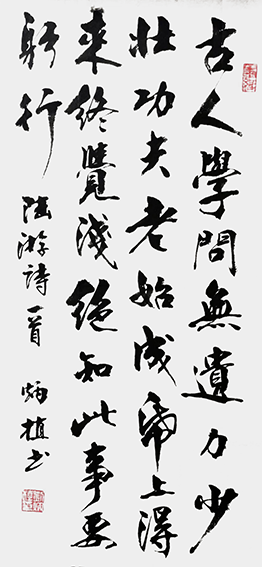 古人學問無遺力少
壯功夫老始成帋上得
来終覺淺絕知此事要
躬行 陸游詩一首 炳植書